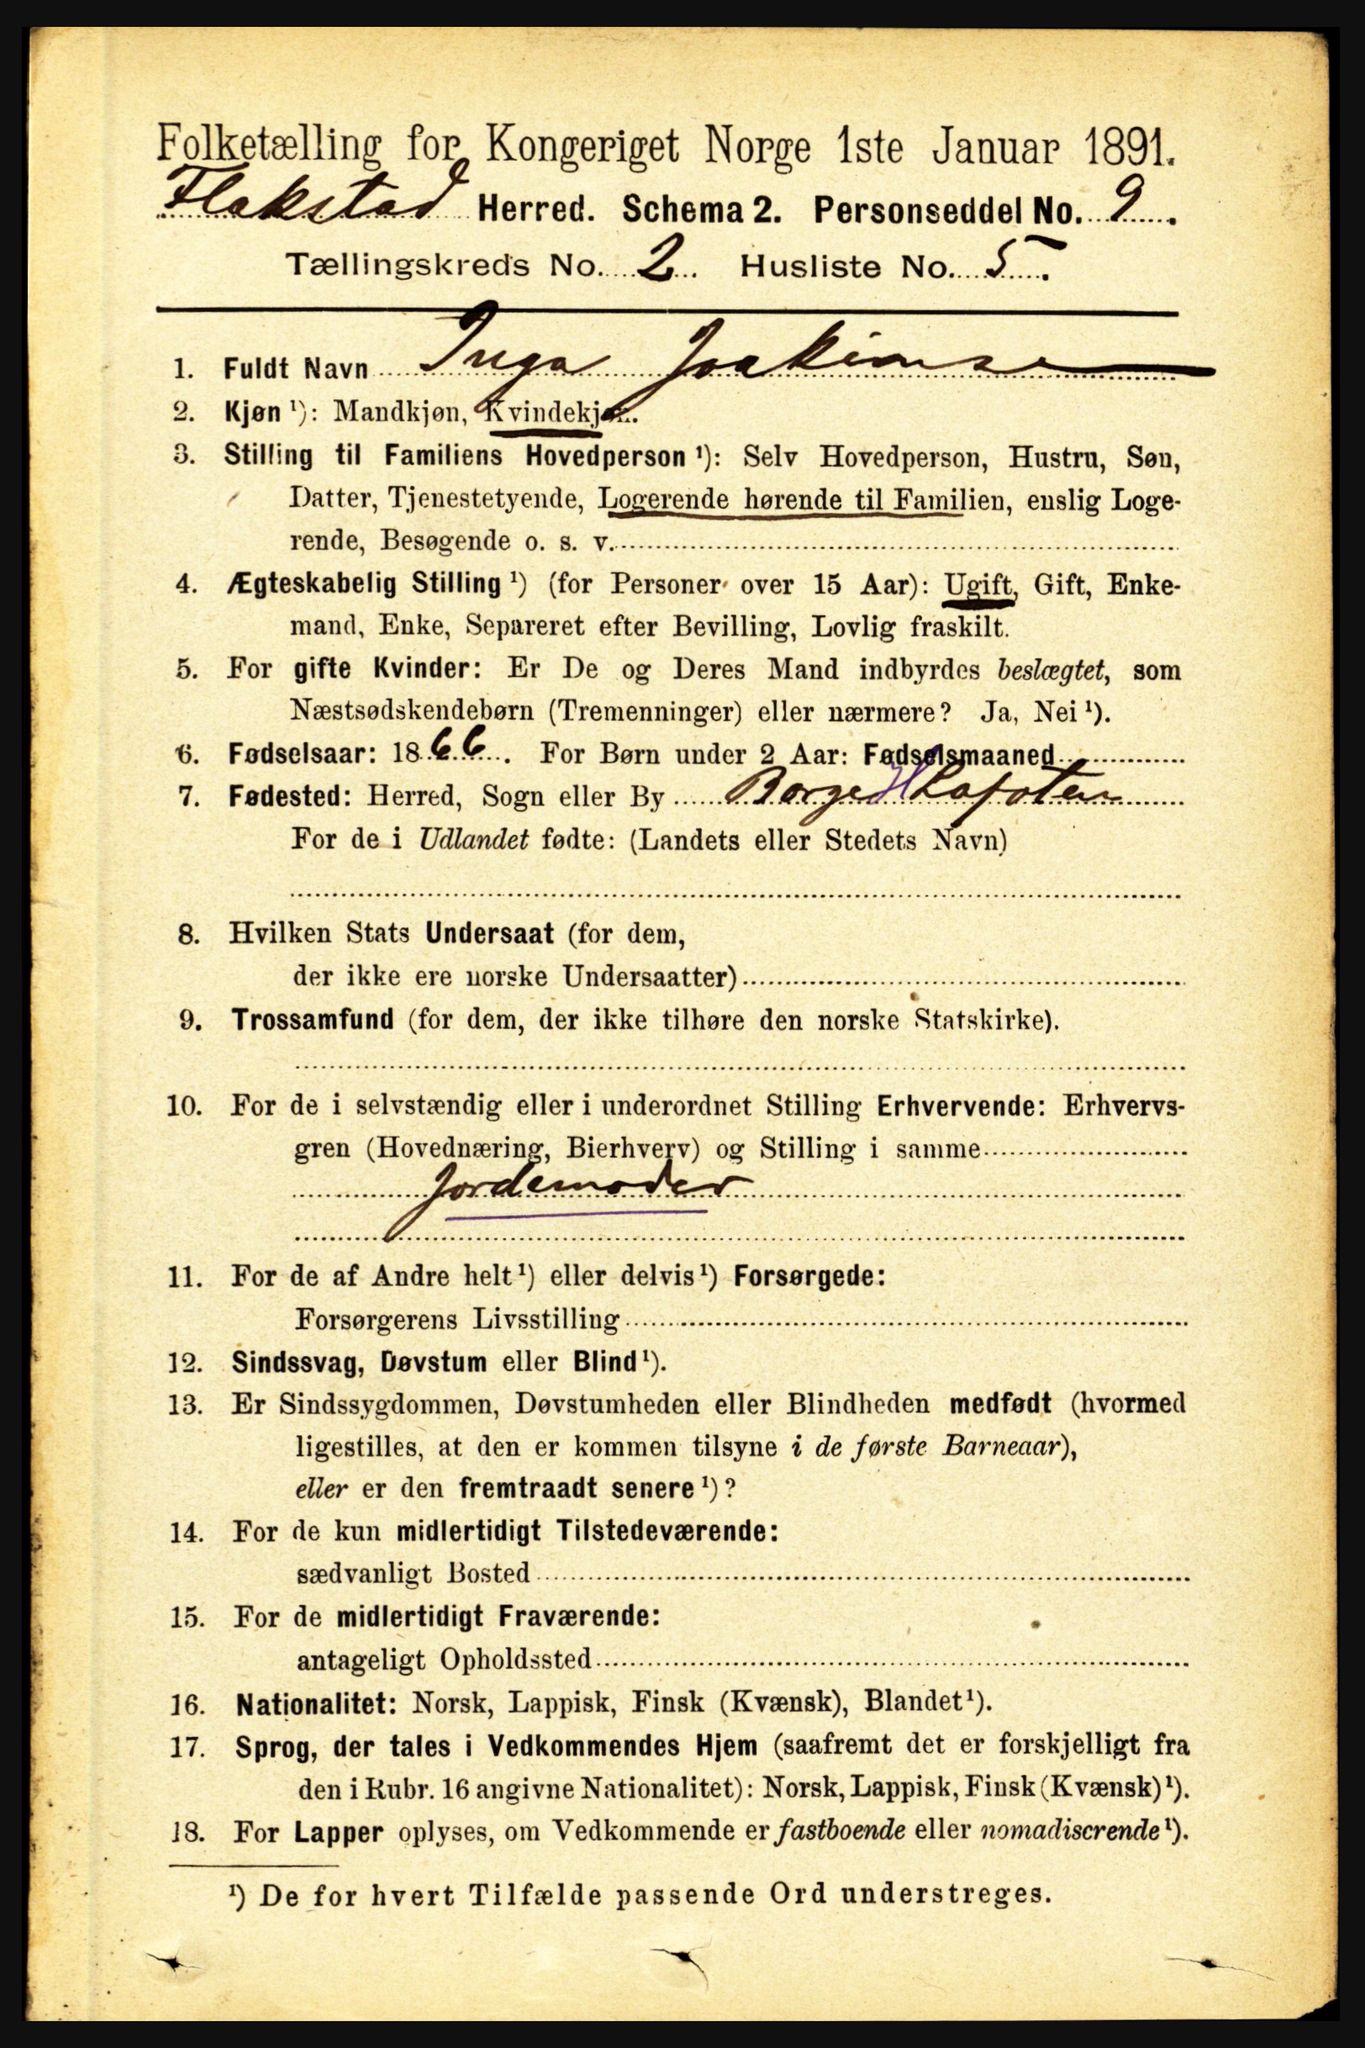 Folketælling for Kongeriget Norge 1ste Januar 1891.
Flakstad Herred. Schema 2. Personseddel No. 9.
Tællingskreds No. 2. Husliste No. 5.
1. Fuldt Navn Inga Joakimse
2. Kjøn ¹): Mandkjøn, Kvindekjøn.
3. Stilling til Familiens Hovedperson ¹): Selv Hovedperson, Hustru, Søn,
Datter, Tjenestetyende, Logerende hørende til Familien, enslig Loge-
rende, Besøgende o. s. v.
4. Ægteskabelig Stilling ¹) (for Personer over 15 Aar): Ugift, Gift, Enke-
mand, Enke, Separeret efter Bevilling, Lovlig fraskilt.
5. For gifte Kvinder: Er De og Deres Mand indbyrdes beslægtet, som
Næstsødskendebørn (Tremenninger) eller nærmere? Ja, Nei ¹).
6. Fødselsaar: 1866. For Børn under 2 Aar: Fødselsmaaned
7. Fødested: Herred, Sogn eller By Borge H Lofoten
For de i Udlandet fødte: (Landets eller Stedets Navn)
8. Hvilken Stats Undersaat (for dem,
der ikke ere norske Undersaatter)
9. Trossamfund (for dem, der ikke tilhøre den norske Statskirke).
10. For de i selvstændig eller i underordnet Stilling Erhvervende: Erhvervs-
gren (Hovednæring, Bierhverv) og Stilling i samme
Jordemoder
11. For de af Andre helt ¹) eller delvis ¹) Forsørgede:
Forsørgerens Livsstilling
12. Sindssvag, Døvstum eller Blind ¹).
13. Er Sindssygdommen, Døvstumheden eller Blindheden medfødt (hvormed
ligestilles, at den er kommen tilsyne i de første Barneaar),
eller er den fremtraadt senere ¹)?
14. For de kun midlertidigt Tilstedeværende:
sædvanligt Bosted
15. For de midlertidigt Fraværende:
antageligt Opholdssted
16. Nationalitet: Norsk, Lappisk, Finsk (Kvænsk), Blandet ¹).
17. Sprog, der tales i Vedkommendes Hjem (saafremt det er forskjelligt fra
den i Rubr. 16 angivne Nationalitet): Norsk, Lappisk, Finsk (Kvænsk) ¹).
18. For Lapper oplyses, om Vedkommende er fastboende eller nomadiserende ¹).
¹) De for hvert Tilfælde passende Ord understreges.